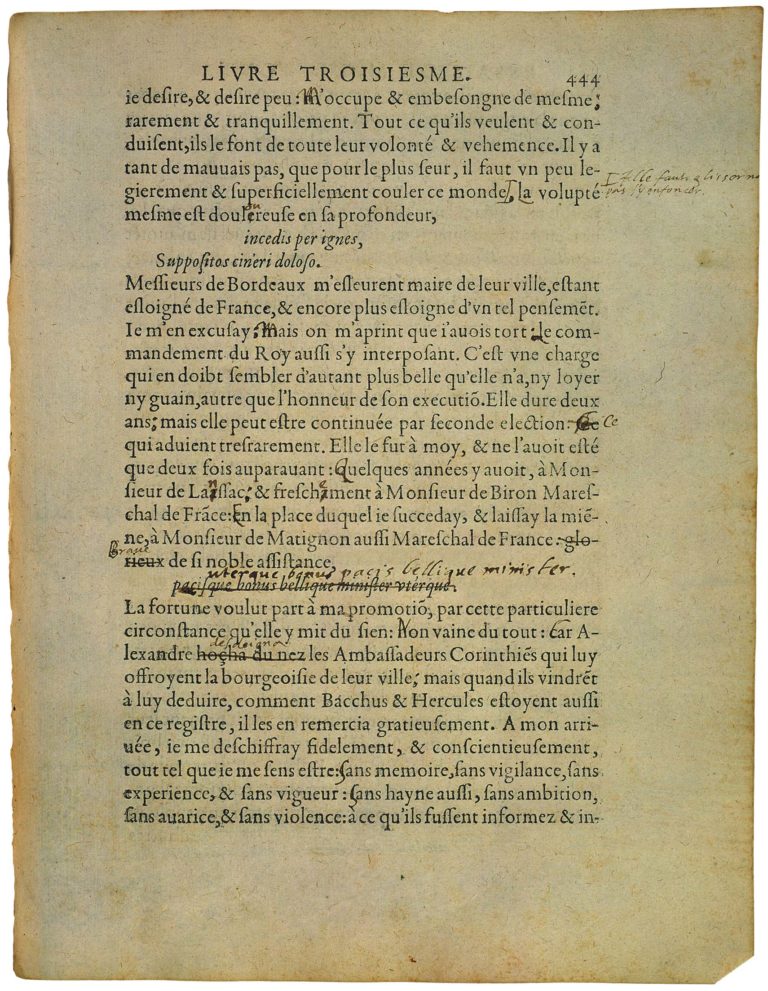 LIVRE TROISIESME. 444
ie desire, & desire peu: M'occupe & embesongne de mesme;
rarement & tranquillement. Tout ce qu'ils veulent & con-
duisent, ils le font de toute leur volonté & vehemence. Il y a
tant de mauuais pas, que pour le plus seur, il faut vn peu le-
gierement & superficiellement couler ce monde, La volupté
pas s'y enfoncer.
mesme est doulereuse en sa profondeur,
incedis per ignes,
Suppositos cineri doloso.
Messieurs de Bordeaux m'esleurent maire de leur ville, estant
esloigné de France, & encore plus esloigne d'vn tel pensemẽt.
Ie m'en excusay; Mais on m'aprint que i'auois tort: Le com-
mandement du Roy aussi s'y interposant. C'est vne charge
qui en doibt sembler d'autant plus belle qu'elle n'a, ny loyer
ny guain, autre que l'honneur de son executiõ. Elle dure deux
ans; mais elle peut estre continuée par seconde election: Ce Ce
qui aduient tresrarement. Elle le fut à moy, & ne l'auoit esté
que deux fois auparauant: Quelques années y auoit, à Mon-
sieur de Lanssac; & freschement à Monsieur de Biron Mares-
chal de Frãce: En la place duquel ie succeday, & laissay la miẽ-
ne, à Monsieur de Matignon aussi Mareschal de France: glo-
Braue
rieux de si noble assistance,
uterque bonus pacis bellique minister.
pacisque bonus bellique minister vterque.
La fortune voulut part à ma promotiõ, par cette particuliere
circonstance qu'elle y mit du sien: Non vaine du tout: Car A-
desdeigna
lexandre hocha du nez les Ambassadeurs Corinthiẽs qui luy
offroyent la bourgeoisie de leur ville; mais quand ils vindrẽt
à luy deduire, comment Bacchus & Hercules estoyent aussi
en ce registre, il les en remercia gratieusement. A mon arri-
uée, ie me deschiffray fidelement, & conscientieusement,
tout tel que ie me sens estre: sans memoire, sans vigilance, sans
experience, & sans vigueur: sans hayne aussi, sans ambition,
sans auarice, & sans violence: à ce qu'ils fussent informez & in-